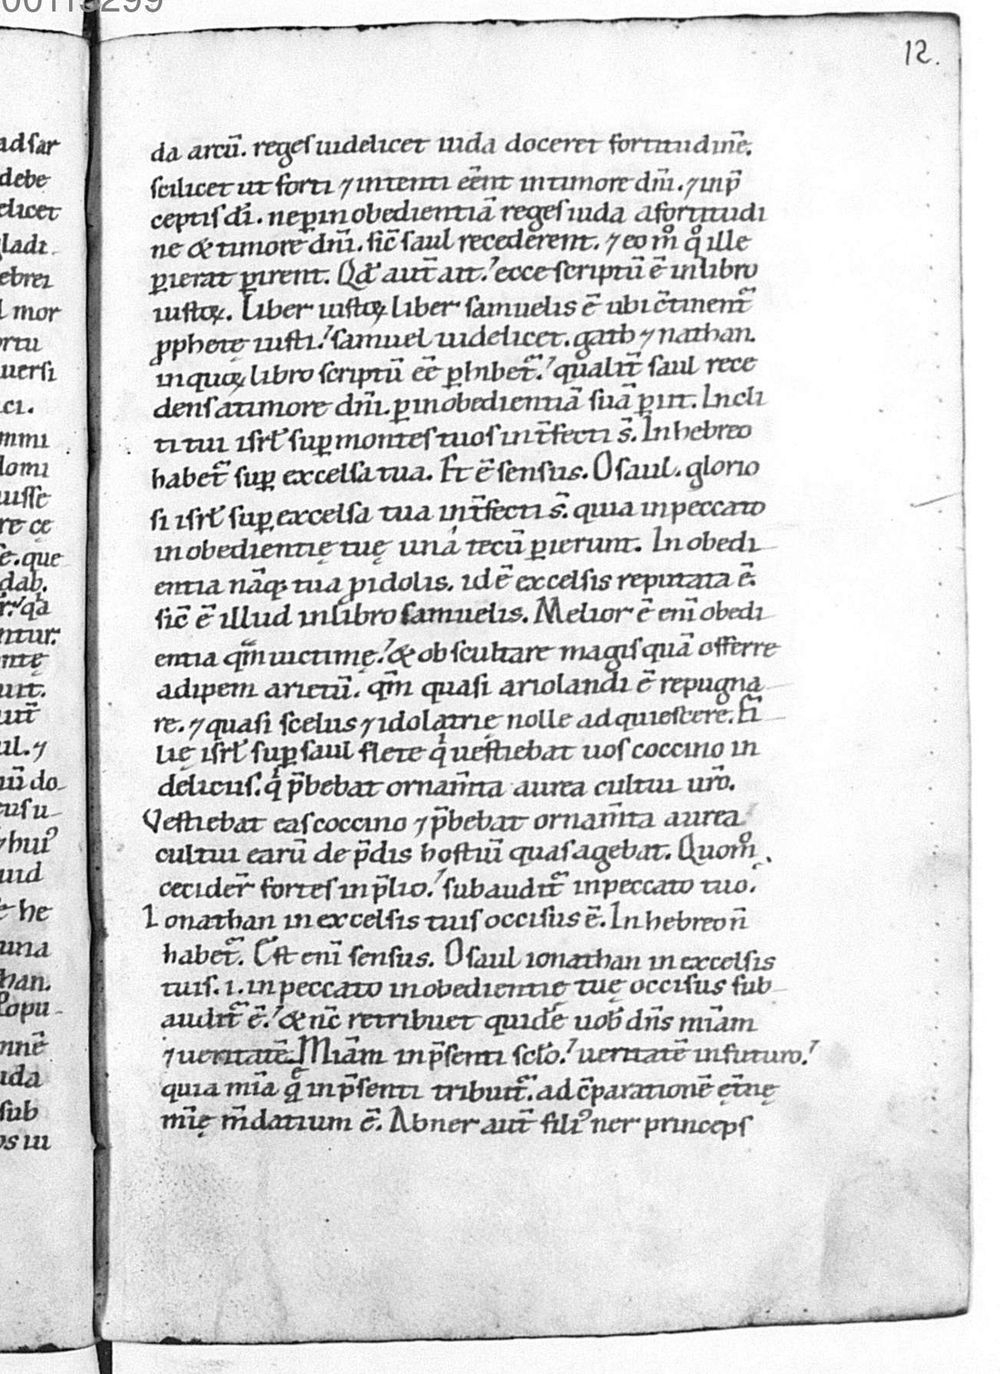 00113299
12.
adsar
debe
elicet
gladi
ebrei
l mor
ortu
uersi
ci.
mmi
lomi
uisse
re cę
ē. que
dab.
ntur.
ntę
uit.
uit̄
ul. ⁊
iū do
cusu
⁊ hui᷒
uid
ē he
una
than.
Popu
mnē
uda
sub
os iu
da arcū. reges uidelicet iuda doceret fortitudinē.
scilicet ut forti ⁊ intenti eēnt in timore dn̄i. ⁊ in p̄
ceptis dī. ne ꝑ inobedientiā reges iuda a fortitudi
ne & timore dn̄i. sic̄ saul recederent. ⁊ eo m̊ q̊ ille
ꝑierat ꝑirent. Qd̄ aut̄ ait. ecce scriptū ē in libro
iustoꝝ. Liber iustoꝝ liber samuelis ē ubi c̄tinent̄
ꝓphetę iusti. samuel uidelicet. gath ⁊ nathan.
in quoꝝ libro scriptū eē ꝑhibet̄. qualit̄ saul rece
dens a timore dn̄i. ꝑ inobedientiā suā ꝑiit. Incli
ti tui isrł suꝑ montes tuos int̄fecti s̄. In hebreo
habet̄ suꝑ excelsa tua. Et ē sensus. O saul. glorio
si isrł suꝑ excelsa tua int̄fecti s̄. quia in peccato
inobedientię tuę una tecū ꝑierunt. Inobedi
entia nāq; tua ꝓ idolis. id ē excelsis reputata ē.
sic̄ ē illud in libro samuelis. Melior ē enī obedi
entia qm̄ uictimę. & obscultare magis quā offerre
adipem arietū. qm̄ quasi ariolandi ē repugna
re. ⁊ quasi scelus ⁊ idolatrię nolle adquiescere. Fi
lię isrł suꝑ saul flete qͥ uestiebat uos coccino in
deliciis. qͥ p̄bebat ornam̄ta aurea cultui ur̄o.
Vestiebat eas coccino ⁊ p̄bebat ornam̄ta aurea
cultui earū de p̄dis hostiū quas agebat. Quom̊
cecider̄ fortes in p̄lio. subaudit̄ in peccato tuo.
Ionathan in excelsis tuis occisus ē. In hebreo n̄
habet̄. Est enī sensus. O saul ionathan in excelsis
tuis. .i. in peccato inobedientię tuę occisus sub
audit̄ ē. & nc̄ retribuet quidē uob̄ dn̄s miām
⁊ ueritatē. Miām in p̄senti sclō. ueritatē in futuro.
quia mīa q̄ in p̄senti tribuit̄. ad c̄parationē et̄nę
mīę m̄datium ē. Abner aut̄ fili᷒ ner princeps